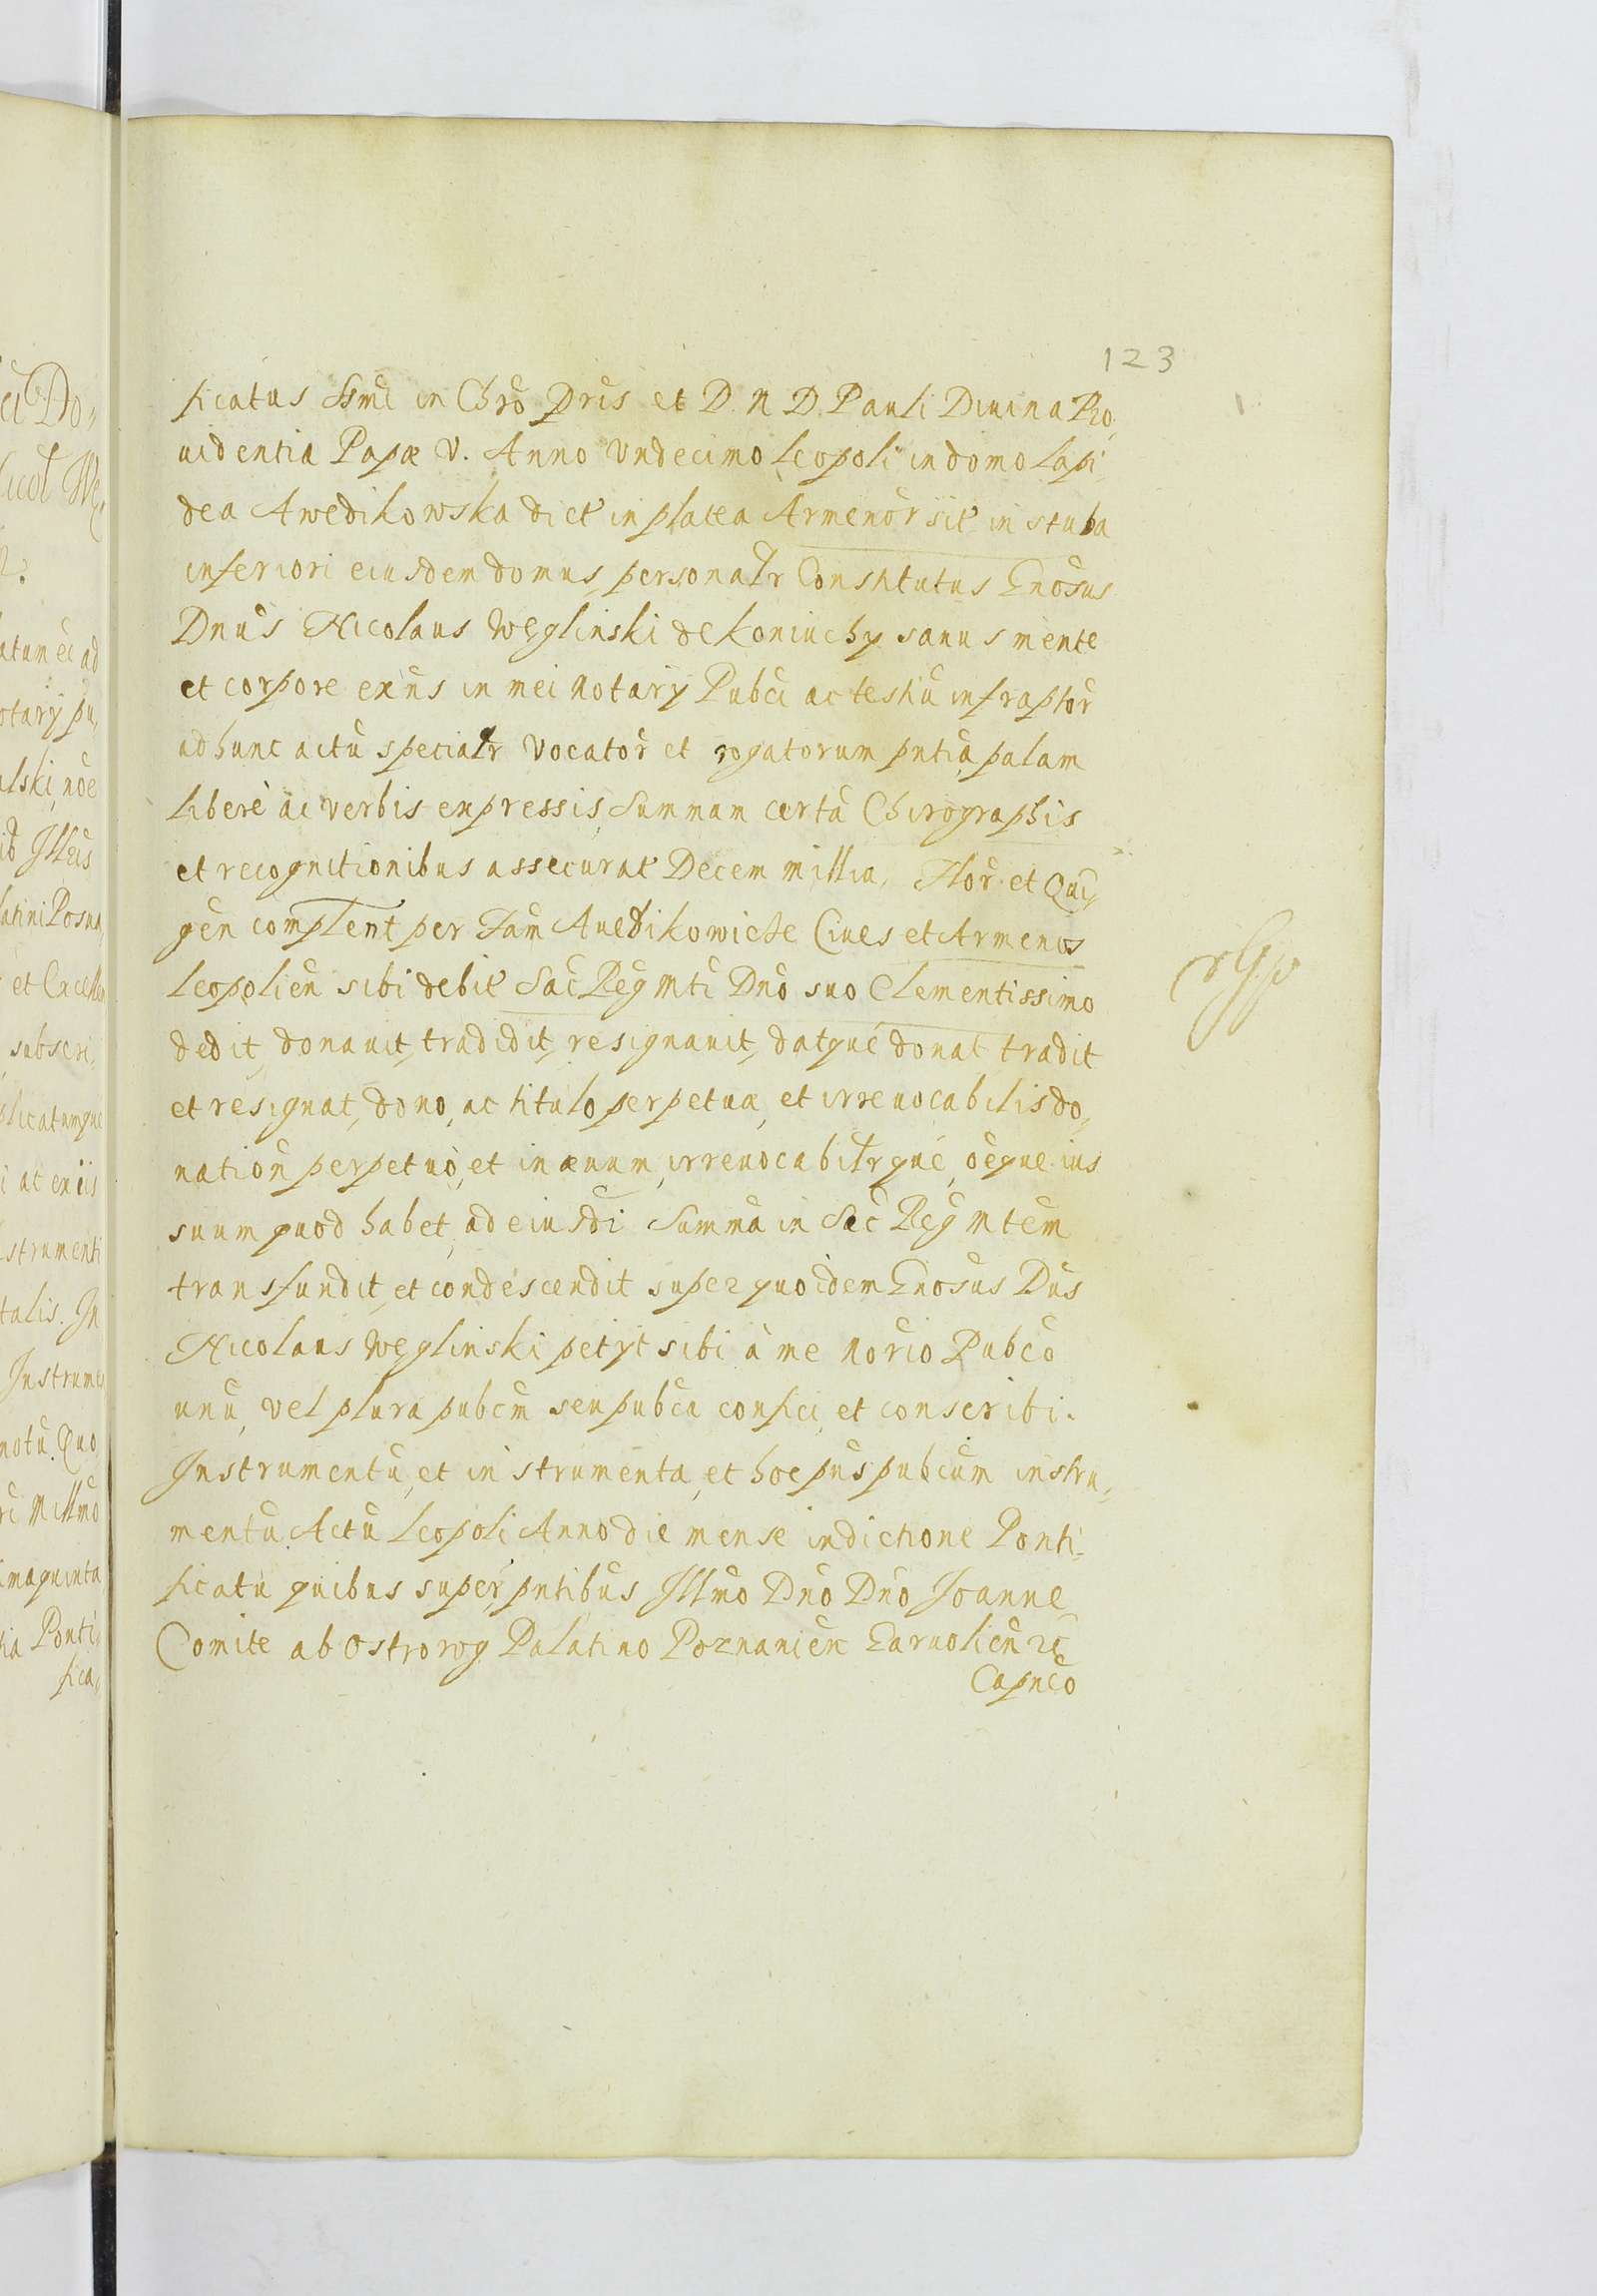 123
ficatus Ssmi in Chrō Pris et D. N D. Pauli Diuina Pro,
uidentia Papæ V. Anno Vndecimo Leopoli in domo Lapi
dea Awedikowska dict in platea Armenor̄ sit in stuba
inferiori eiusdem domus, personalr Constitutus Gnōsus
Dnūs Nicolaus Węglinski de Koniuchy sanus mente
et corpore exn̄s in mei Notarÿ Pubci ac testiū infraptor̄
ad hunc actū specialr Vocator̄ et rogatorum pntiā palam
liberè ac verbis expressis, Summam certā Chirographis
et recognitionibus assecurat Decem millia, Flor̄ et Qui,
gen complent per Fam Auedikowicze Ciues et Armenos
Leopolien̄ sibi debit Sac̄ Reg Mti Dnō suo Clementissimo
dedit, donauit, tradidit, resignauit, datque donat tradit
et resignat, dono, ac titulo perpetuæ, et irreuocabilis do,
nation̄ perpetuò, et in æuum, irreuocabilrque, oēque ius
suum quod habet, ad eiusdi Summā in Sac̄ Reḡ Mtem
transfundit, et condescendit super quo idem Gnosus Dus
Nicolaus Węglinski petÿt sibi à me Norio Pubco
unū, vel plura pubcm seu pubca confici, et conscribi.
Instrumentū, et instrumenta, et hoc pn̄s pubcum instru,
mentū. Actū Leopoli Anno die mense indictione Ponti
ficatu quibus super, pntibus Illmo Dnō Dnō Joanne
Comite ab Ostrorog Palatino Poznanien̄ Garuolien̄ etc̄
Capnco